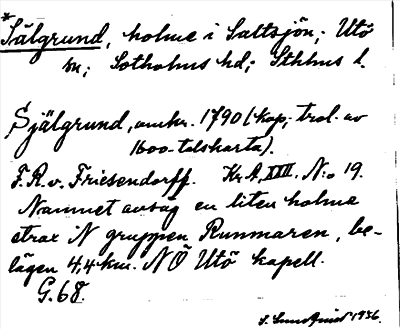 *Sälgrund, holme i Saltsjön; Utö
sn; Sotholms hd; Sthlms l.
Själgrund, omkr. 1790 (kop, trol. av
1600-talskarta).
F.R.v. Friesendorff. Kr.A. XXIII. N:o 19.
Namnet avsåg en liten holme
strax N gruppen Runmaren, be-
lägen 4,4 km. NÖ Utö kapell.
G.68.
S. Lundquist 1936.